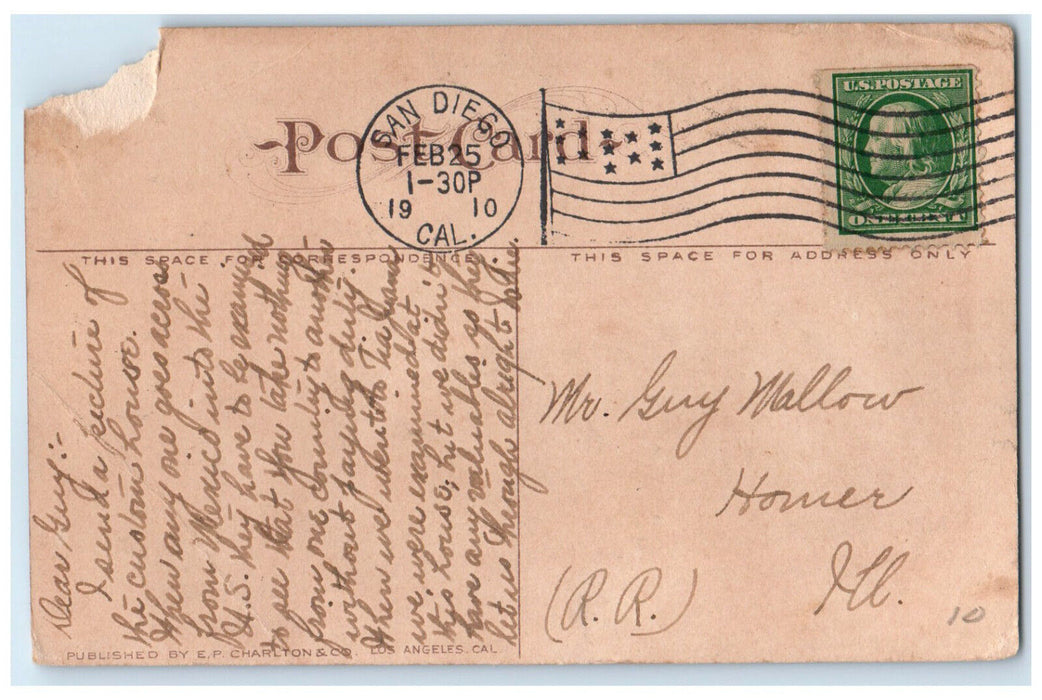 Post Card
SAN DIEGO
FEB 25
1-30P
19 10
CAL.
U.S. POSTAGE
ONE CENT
THIS SPACE FOR CORRESPONDENCE.
THIS SPACE FOR ADDRESS ONLY
Dear Guy:-
I send a picture of
the custom house.
When any one goes across
from Mexico into the
U.S. they have to be examed
to see that you take nothing
from one country to another
without paying duty.
When we went to Tia Juana
we were examined at
this house, but we didn't
have any valuables so they
let us through alright
Mr. Guy Mallow
Homer
Ill.
(R. R.)
10
PUBLISHED BY E. P. CHARLTON & CO. LOS ANGELES. CAL